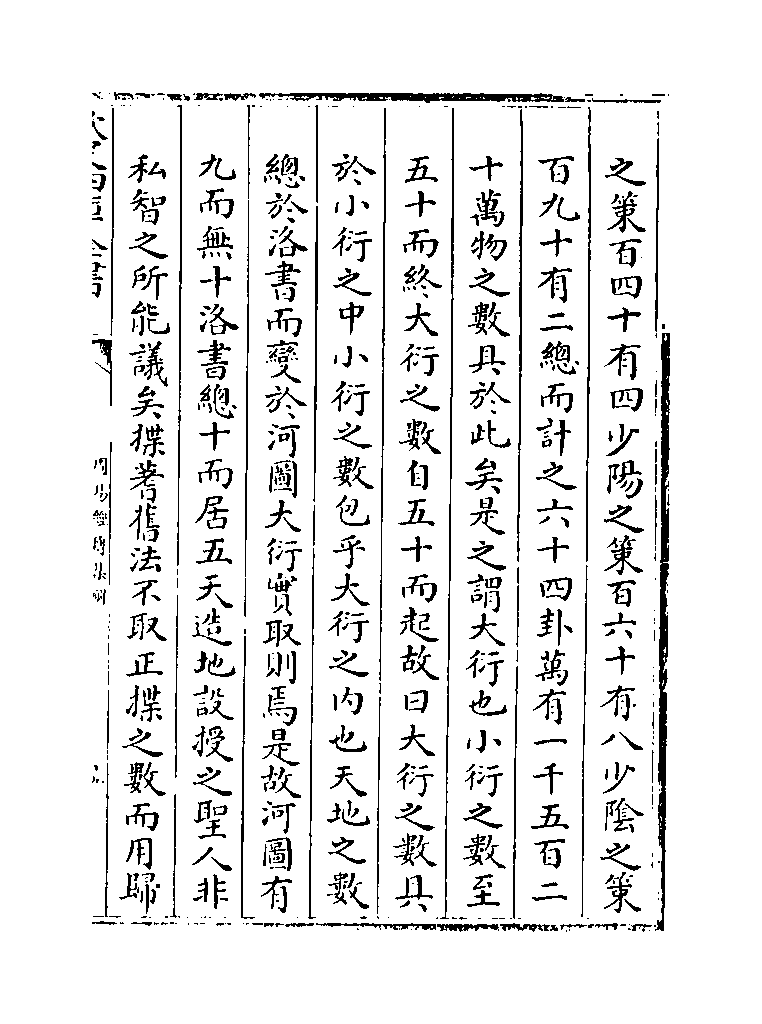 之策百四十有四少陽之策百六十有八少陰之策
百九十有二總而計之六十四卦萬有一千五百二
十萬物之數具於此矣是之謂大衍也小衍之數至
五十而終大衍之數自五十而起故曰大衍之數具
於小衍之中小衍之數包乎大衍之内也天地之數
總於洛書而變於河圖大衍實取則焉是故河圖有
九而無十洛書總十而居五天造地設授之聖人非
私智之所能議矣揲蓍舊法不取正揲之數而用歸